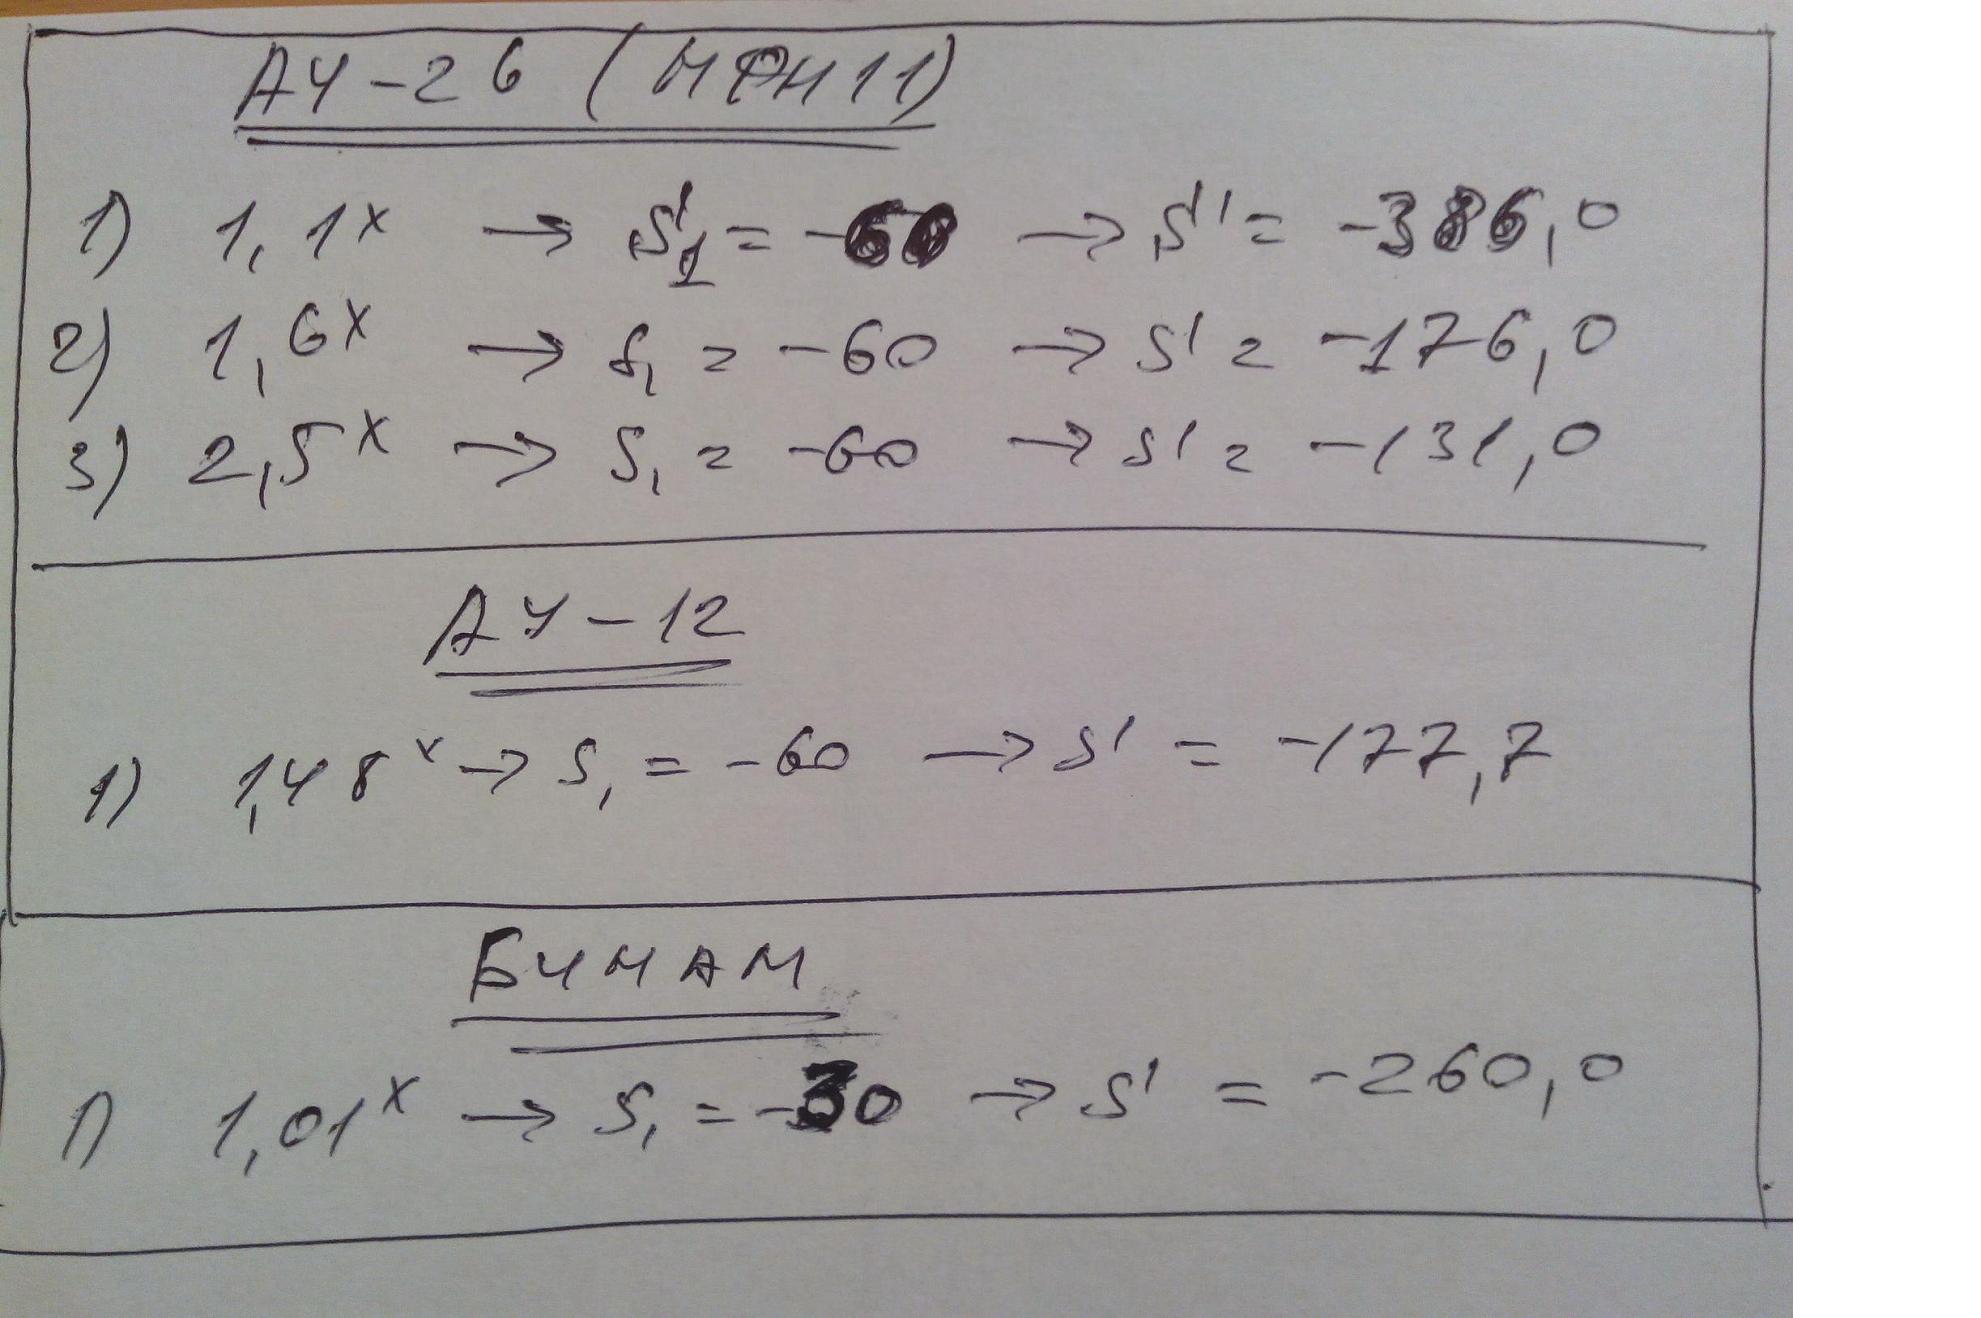 АУ-26 (МФН11)
1) 1,1ˣ → S'₁ = -60 → S'' = -386,0
2) 1,6ˣ → S₁ = -60 → S' = -176,0
3) 2,5ˣ → S₁ = -60 → S' = -131,0
АУ-12
1) 1,48ˣ → S₁ = -60 → S' = -177,7
БИМАМ
1) 1,01ˣ → S₁ = -30 → S' = -260,0